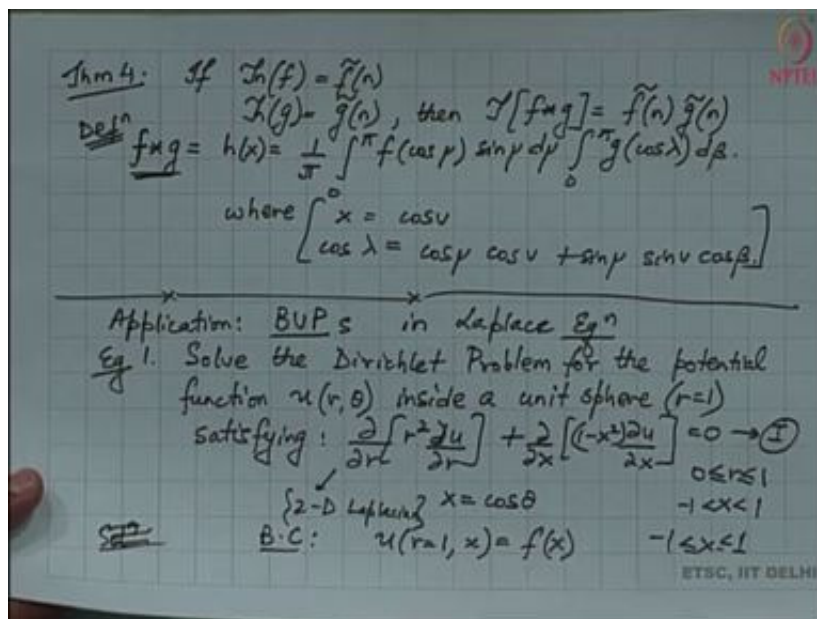 NPTEL
Thm 4: If Tn(f) = f̃(n)
Tn(g) = g̃(n), then T[f*g] = f̃(n) g̃(n)
Defⁿ f*g = h(x) = 1/π ∫₀^π f(cos μ) sin μ dμ ∫₀^π g(cos λ) dβ.
where [ x = cos ν
cos λ = cos μ cos ν + sin μ sin ν cos β. ]
Application: BVPs in Laplace Eqⁿ
Eg 1. Solve the Dirichlet Problem for the potential
function u(r, θ) inside a unit sphere (r=1)
satisfying: ∂/∂r [r² ∂u/∂r] + ∂/∂x [(1-x²) ∂u/∂x] = 0 → I
0≤r≤1
{2-D Laplacian} x = cos θ -1<x<1
Solⁿ B.C: u(r=1, x) = f(x) -1≤x≤1
ETSC, IIT DELHI